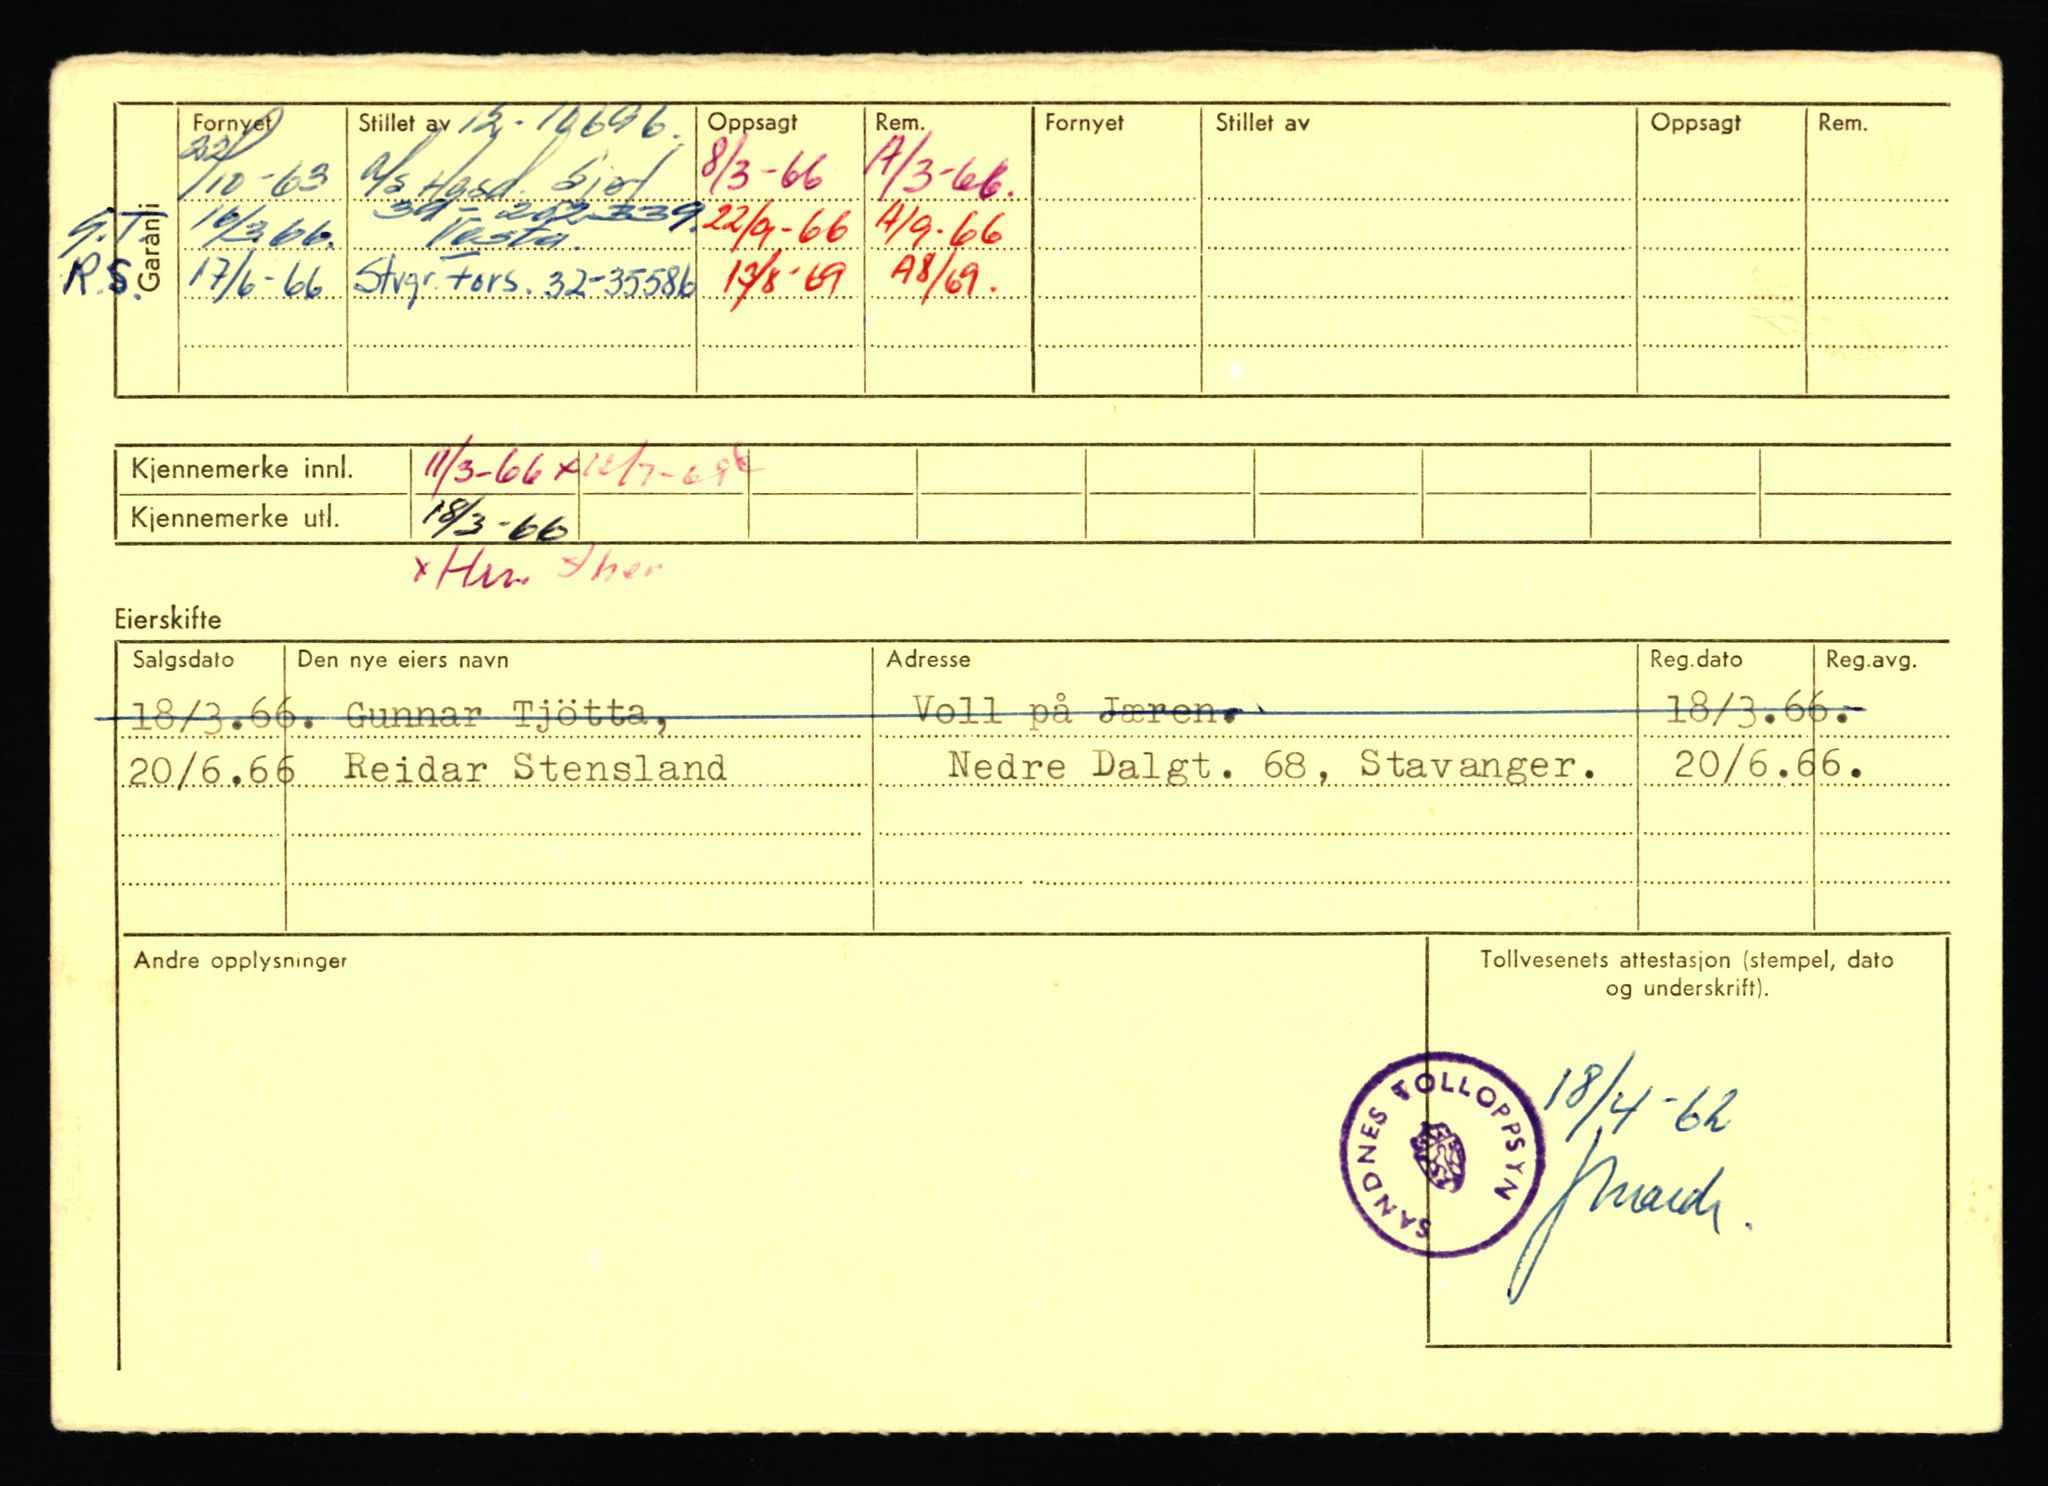 Fornyet Stillet av 12-10696. Oppsagt Rem. Fornyet Stillet av Oppsagt Rem.
22/10-63 8/3-66 A/3-66.
Garanti
G.T. 16/3 66. 39-202339. Vesta. 22/9-66 A/9-66
R.S. 17/6-66 Stvgr. Fors. 32-35586 13/8-69 A8/69.
Kjennemerke innl. 11/3-66 x
Kjennemerke utl. 18/3-66
x Her. x her
Eierskifte
Salgsdato Den nye eiers navn Adresse Reg.dato Reg.avg.
18/3.66. Gunnar Tjötta, Voll på Jæren. 18/3.66.
20/6.66 Reidar Stensland Nedre Dalgt. 68, Stavanger. 20/6.66.
Andre opplysninger
Tollvesenets attestasjon (stempel, dato
og underskrift).
SANDNES TOLLOPPSYN
18/4-62